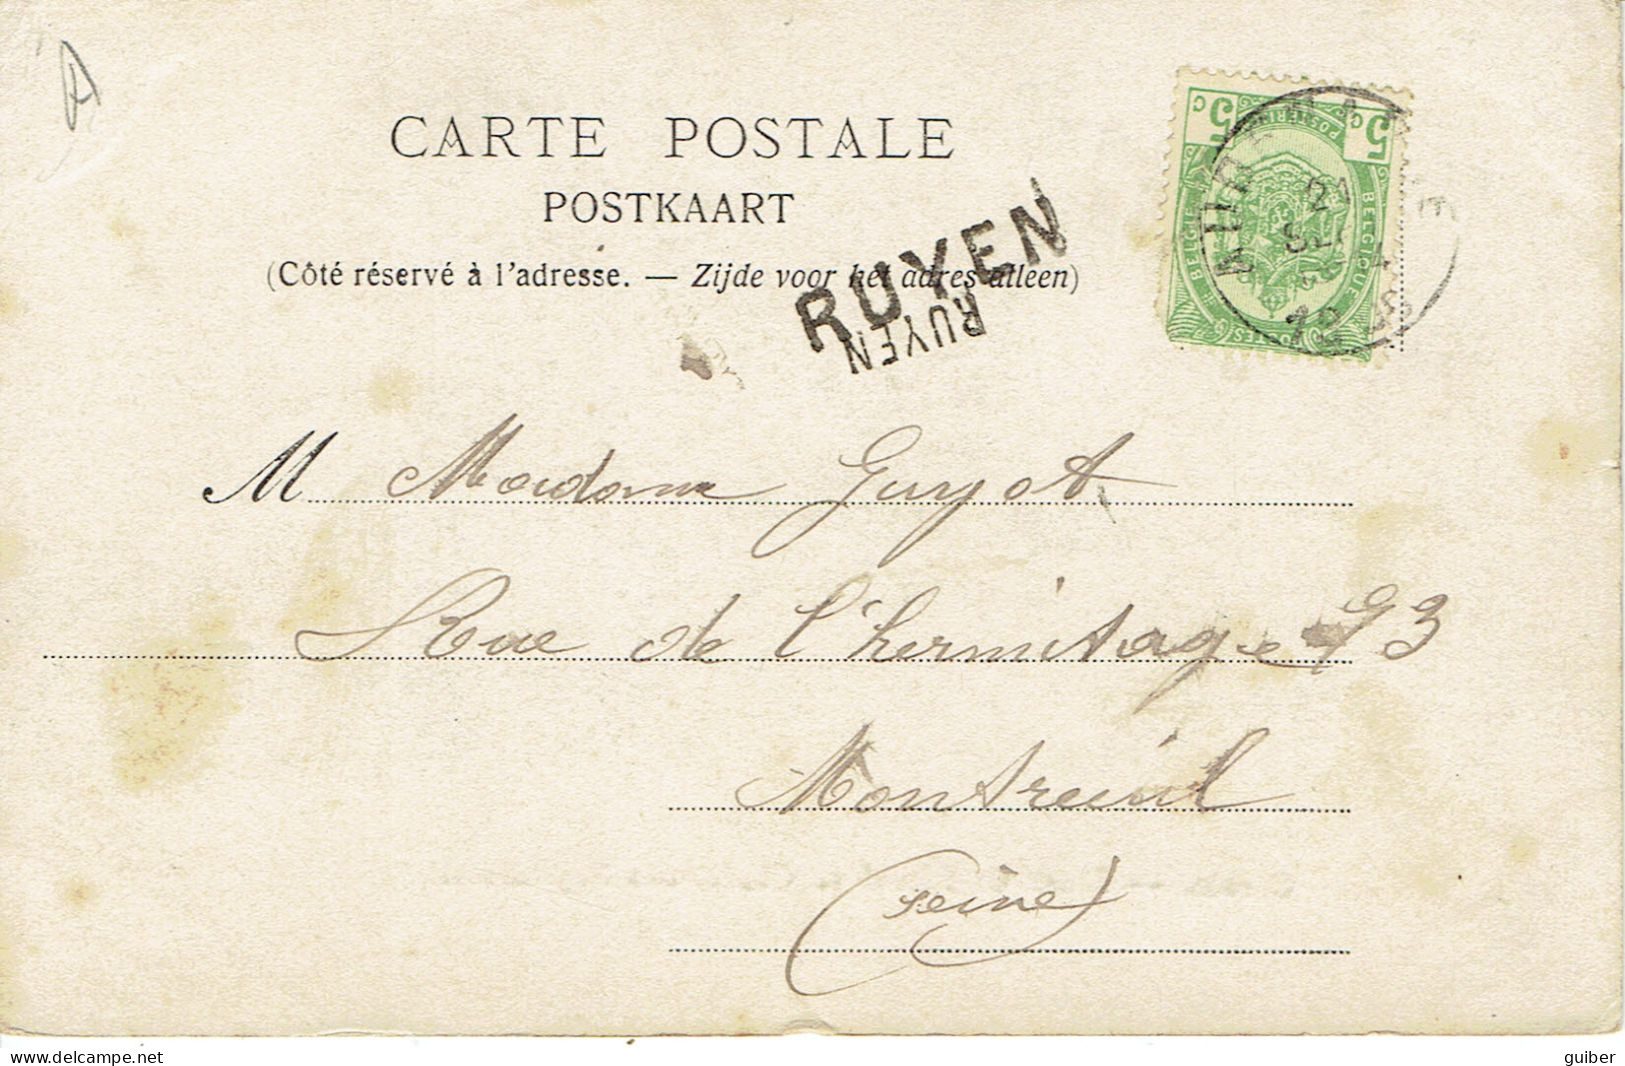 CARTE POSTALE
POSTKAART
(Côté réservé à l'adresse. — Zijde voor het adres alleen)
RUYEN
RUYEN
5 c 5 c
BELGIE BELGIQUE
21
12
M Madame Guyot
Rue de l'hermitage 93
Montreuil
(Seine)
https://www.delcampe.net
guiber